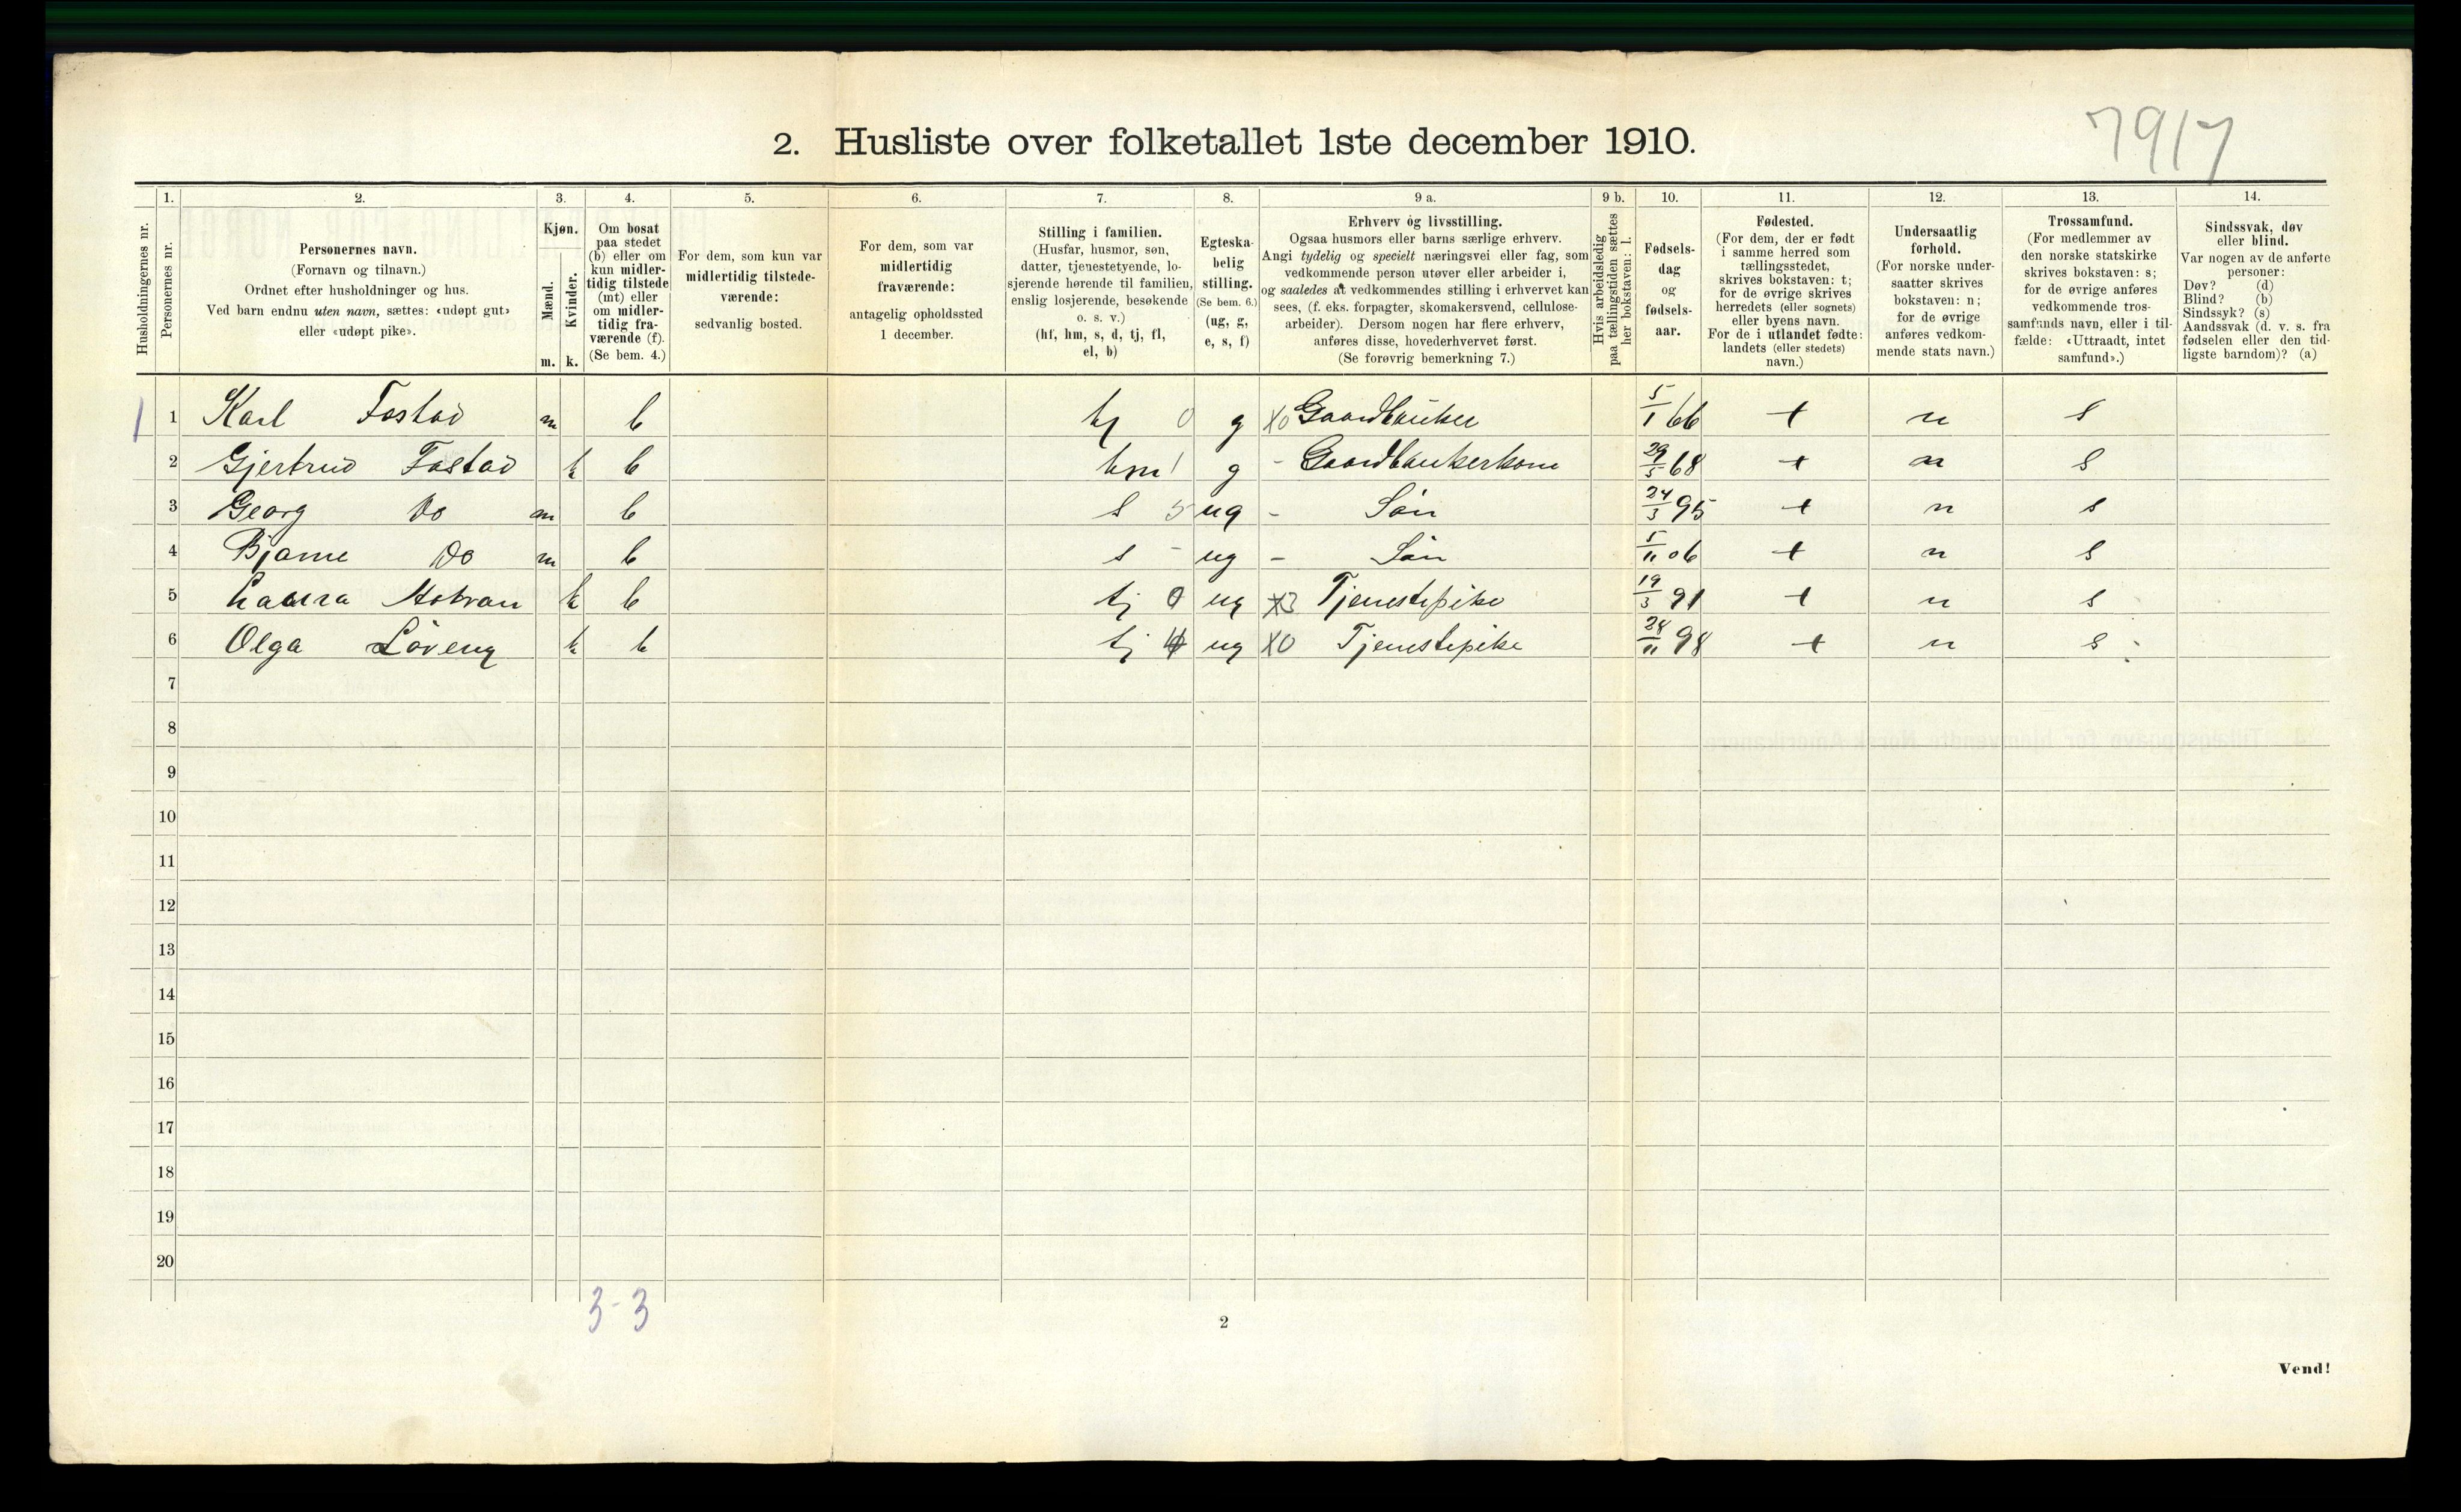 7917
2. Husliste over folketallet 1ste december 1910.
1. 2. 3. 4. 5. 6. 7. 8. 9 a. 9 b. 10. 11. 12. 13. 14.
Husholdningernes nr.
Personernes nr.
Personernes navn.
(Fornavn og tilnavn.)
Ordnet efter husholdninger og hus.
Ved barn endnu uten navn, sættes: «udøpt gut»
eller «udøpt pike».
Kjøn.
Mænd.
m.
Kvinder.
k.
Om bosat
paa stedet
(b) eller om
kun midler-
tidig tilstede
(mt) eller
om midler-
tidig fra-
værende (f).
(Se bem. 4.)
For dem, som kun var
midlertidig tilstede-
værende:
sedvanlig bosted.
For dem, som var
midlertidig
fraværende:
antagelig opholdssted
1 december.
Stilling i familien.
(Husfar, husmor, søn,
datter, tjenestetyende, lo-
sjerende hørende til familien,
enslig losjerende, besøkende
o. s. v.)
(hf, hm, s, d, tj, fl,
el, b)
Egteska-
belig
stilling.
(Se bem. 6.)
(ug, g,
e, s, f)
Erhverv og livsstilling.
Ogsaa husmors eller barns særlige erhverv.
Angi tydelig og specielt næringsvei eller fag, som
vedkommende person utøver eller arbeider i,
og saaledes at vedkommendes stilling i erhvervet kan
sees, (f. eks. forpagter, skomakersvend, cellulose-
arbeider). Dersom nogen har flere erhverv,
anføres disse, hovederhvervet først.
(Se forøvrig bemerkning 7.)
Hvis arbeidsledig
paa tællingstiden sættes
her bokstaven: l.
Fødsels-
dag
og
fødsels-
aar.
Fødested.
(For dem, der er født
i samme herred som
tællingsstedet,
skrives bokstaven: t;
for de øvrige skrives
herredets (eller sognets)
eller byens navn.
For de i utlandet fødte:
landets (eller stedets)
navn.)
Undersaatlig
forhold.
(For norske under-
saatter skrives
bokstaven: n;
for de øvrige
anføres vedkom-
mende stats navn.)
Trossamfund.
(For medlemmer av
den norske statskirke
skrives bokstaven: s;
for de øvrige anføres
vedkommende tros-
samfunds navn, eller i til-
fælde: «Uttraadt, intet
samfund».)
Sindssvak, døv
eller blind.
Var nogen av de anførte
personer:
Døv? (d)
Blind? (b)
Sindssyk? (s)
Aandssvak (d. v. s. fra
fødselen eller den tid-
ligste barndom)? (a)
1 1 Karl Fostad m b hf 0 g X0 Gaardbruker 5/1 66 t n s
2 Gjertrud Fostad k b hm 1 g - Gaardbrukerkone 29/5 68 t n s
3 Georg Do m b s 5 ug - Søn 24/3 95 t n s
4 Bjarne Do m b s - ug - Søn 5/11 06 t n s
5 Laura Hotran k b tj 0 ug X3 Tjenestepike 19/3 91 t n s
6 Olga Løveng k b tj 4 ug X0 Tjenestepike 24/11 98 t n s
7
8
9
10
11
12
13
14
15
16
17
18
19
20
3-3
2
Vend!